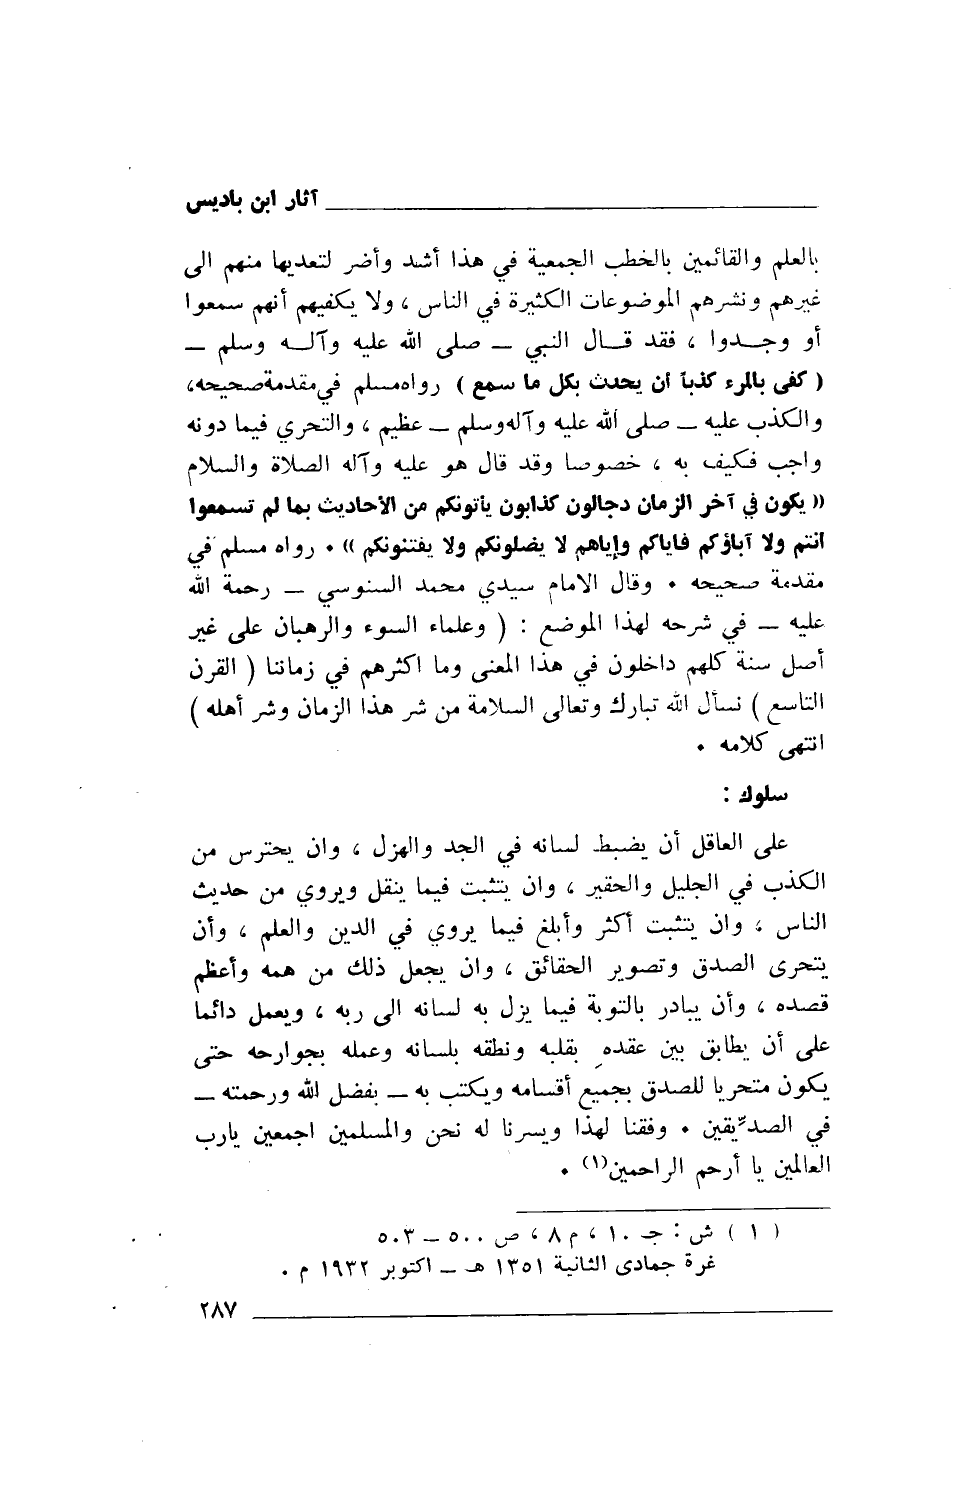 آثار ابن باديس
بالعلم والقائمين بالخطب الجمعية في هذا أشد وأضر لتعديها منهم الى
غيرهم ونشرهم الموضوعات الكثيرة في الناس ، ولا يكفيهم أنهم سمعوا
أو وجدوا ، فقد قال النبي ــ صلى الله عليه وآله وسلم ــ
( كفى بالمرء كذباً أن يحدث بكل ما سمع ) رواه مسلم في مقدمة صحيحه،
والكذب عليه ــ صلى الله عليه وآله وسلم ــ عظيم ، والتحري فيما دونه
واجب فكيف به ، خصوصا وقد قال هو عليه وآله الصلاة والسلام
(( يكون في آخر الزمان دجالون كذابون يأتونكم من الأحاديث بما لم تسمعوا
انتم ولا آباؤكم فاياكم وإياهم لا يضلونكم ولا يفتنونكم )) . رواه مسلم في
مقدمة صحيحه . وقال الامام سيدي محمد السنوسي ــ رحمة الله
عليه ــ في شرحه لهذا الموضع : ( وعلماء السوء والرهبان على غير
أصل سنة كلهم داخلون في هذا المعنى وما اكثرهم في زماننا ( القرن
التاسع ) نسأل الله تبارك وتعالى السلامة من شر هذا الزمان وشر أهله )
انتهى كلامه .
سلوك :
على العاقل أن يضبط لسانه في الجد والهزل ، وان يحترس من
الكذب في الجليل والحقير ، وان يتثبت فيما ينقل ويروي من حديث
الناس ، وان يتثبت أكثر وأبلغ فيما يروي في الدين والعلم ، وأن
يتحرى الصدق وتصوير الحقائق ، وان يجعل ذلك من همه وأعظم
قصده ، وأن يبادر بالتوبة فيما يزل به لسانه الى ربه ، ويعمل دائما
على أن يطابق بين عقده بقلبه ونطقه بلسانه وعمله بجوارحه حتى
يكون متحريا للصدق بجميع أقسامه ويكتب به ــ بفضل الله ورحمته ــ
في الصدّيقين . وفقنا لهذا ويسرنا له نحن والمسلمين اجمعين يارب
العالمين يا أرحم الراحمين(١) .
( ١ ) ش : جـ ١٠ ، م ٨ ، ص ٥٠٠ ــ ٥٠٣
غرة جمادى الثانية ١٣٥١ هـ ــ اكتوبر ١٩٣٢ م .
٢٨٧